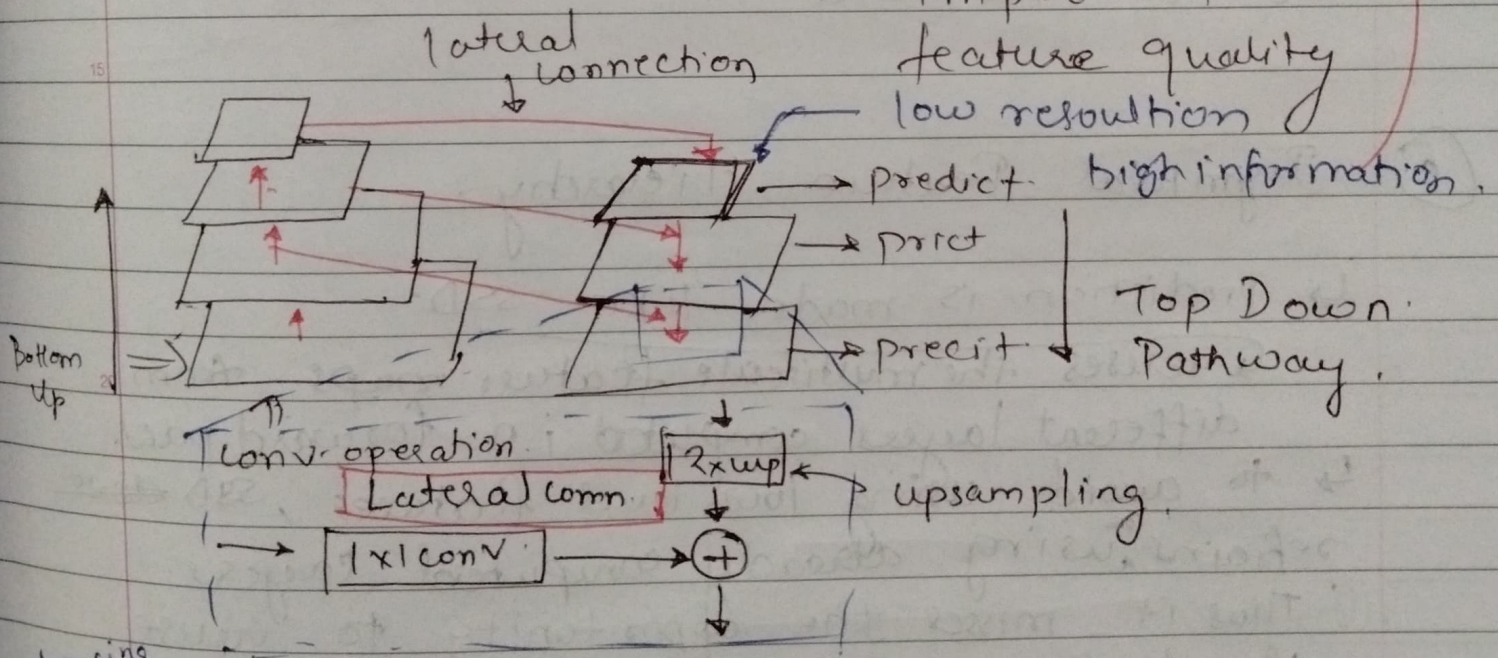 lateral
connection
feature quality
low resoultion
high information.
predict.
prict
precit.
Top Down.
Pathway.
Bottom
Up
conv. operation.
Lateral conn.
2xup
upsampling.
1x1 conv.
+
15